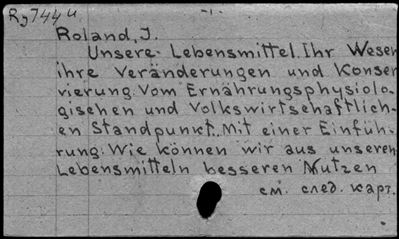 Rg744u -1-
Roland, J.
Unsere Lebensmittel. Ihr Wesen
ihre Veränderungen und Konser
vierung. Vom Ernährungsphysiolo-
gischen und Volkswirtschaftlich-
en Standpunkt. Mit einer Einfüh-
rung: Wie können wir aus unseren
Lebensmitteln besseren Nutzen
см. след. карт.